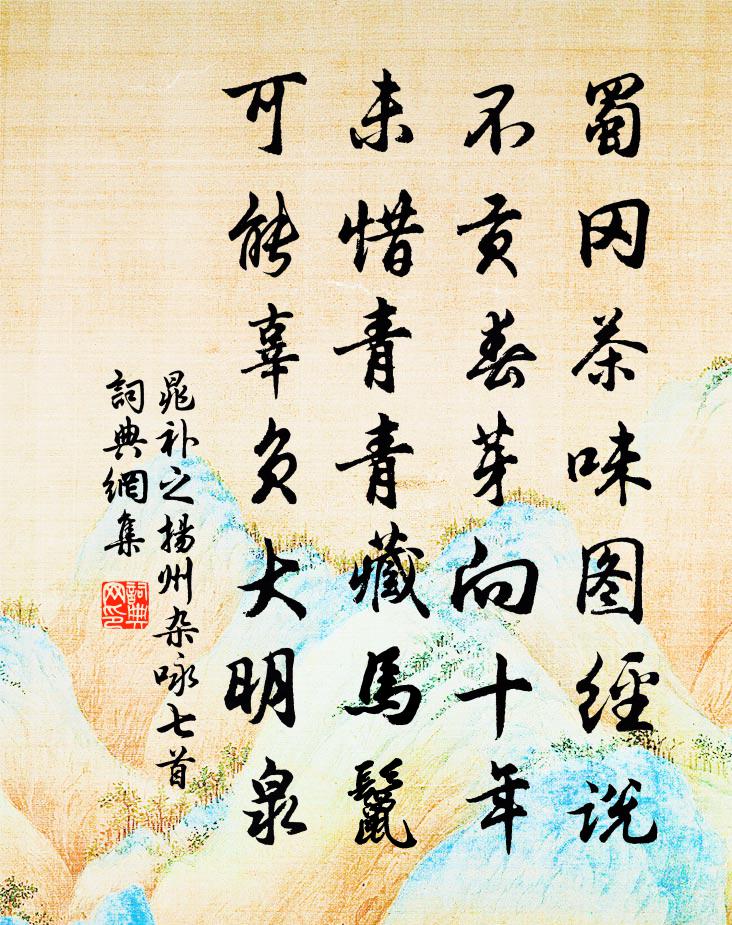 蜀冈茶味图经說
不贡春芽向十年
未惜青青藏馬鬣
可能辜负大明泉
晁补之揚州杂咏七首
詞典網集
詞典网印